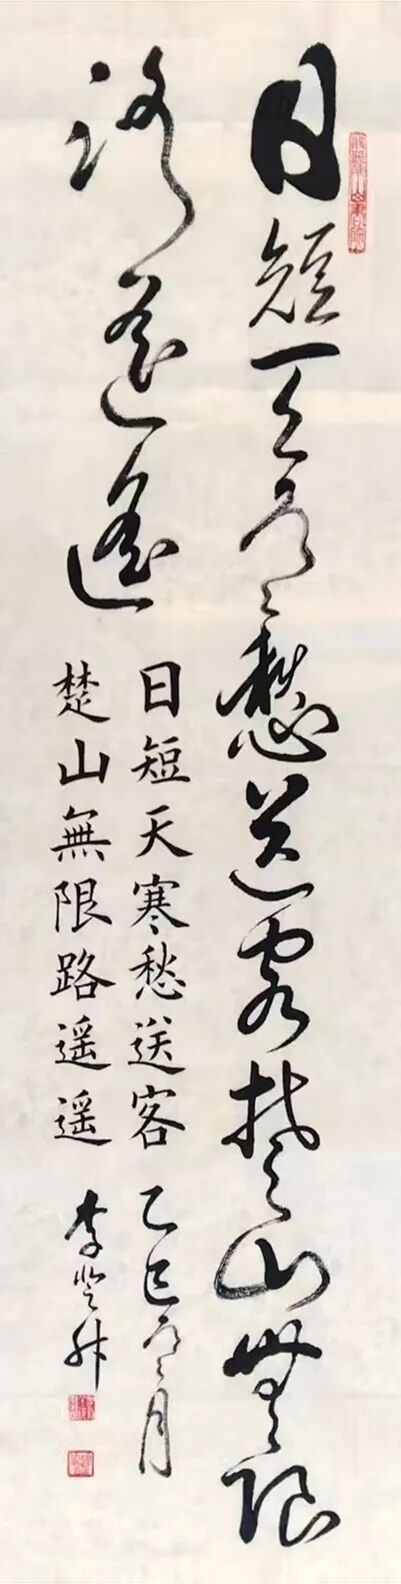 日短天寒愁送客楚山無限
路遥遥
日短天寒愁送客
楚山無限路遥遥
乙巳冬月
李登